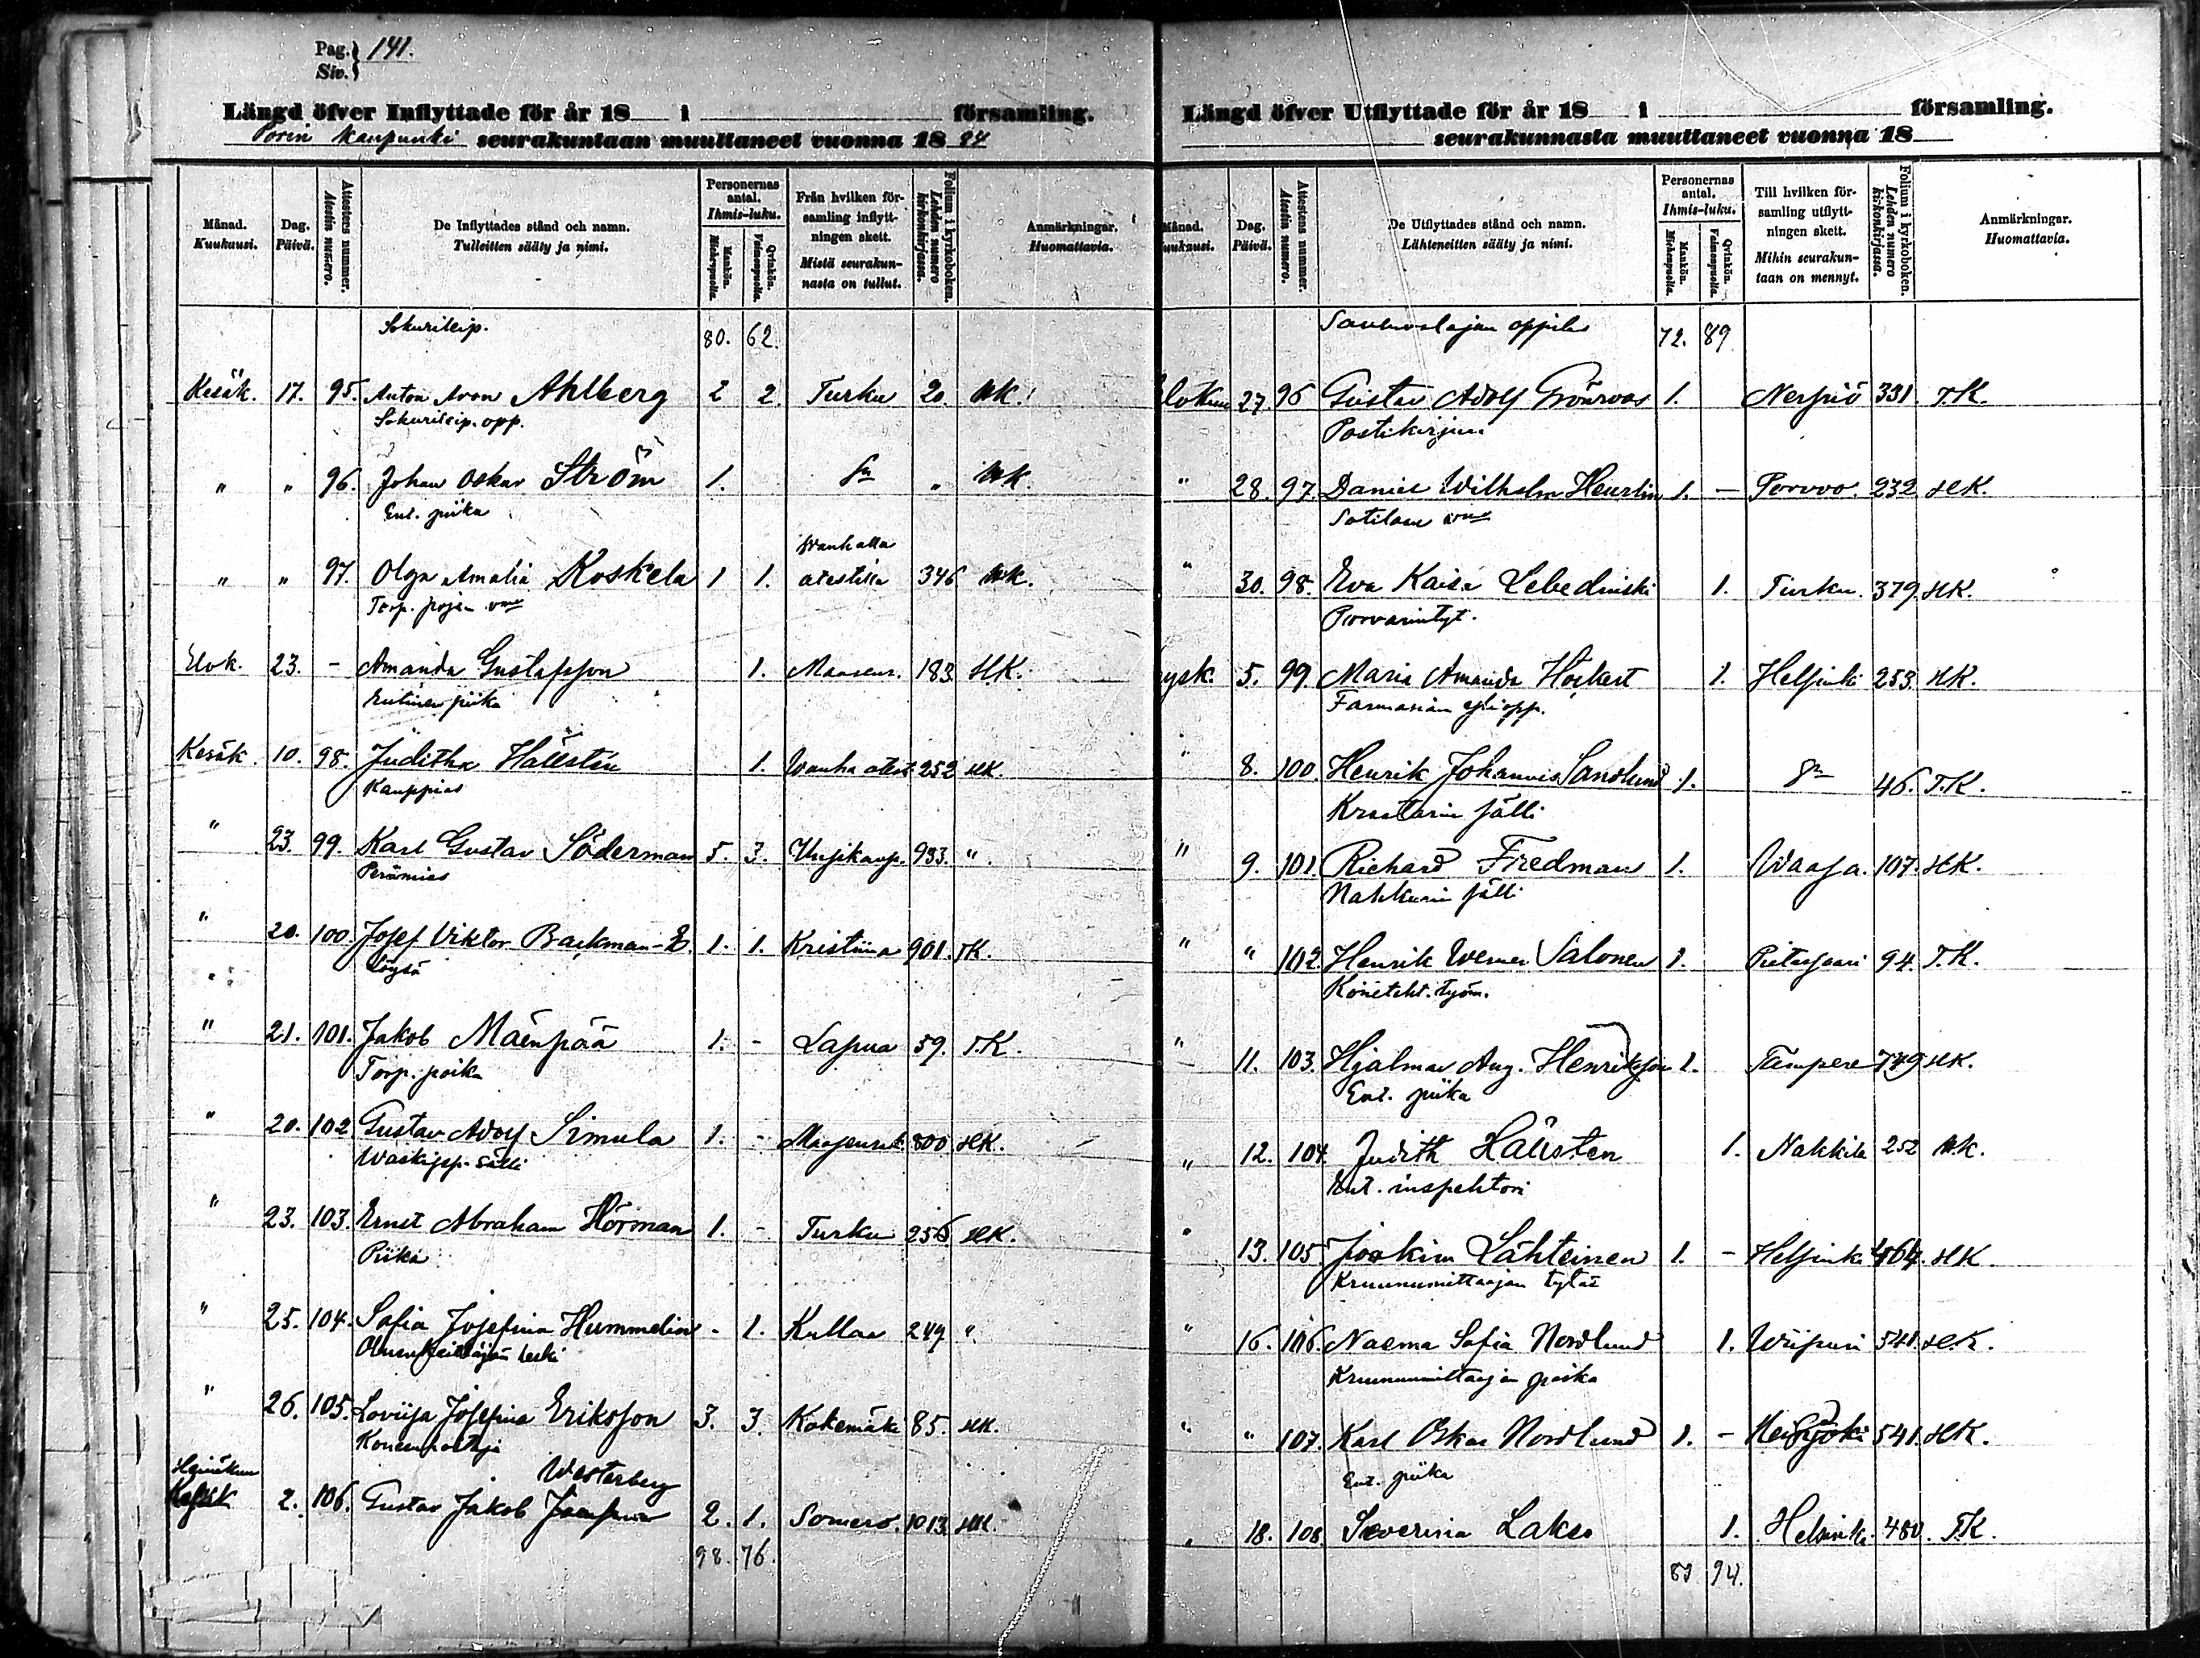 Pag. 141.
Siv.
Längd öfver Inflyttade för år 18 i församling.
Porin kaupunki seurakuntaan muuttaneet vuonna 1884
Månad. Kuukausi. Dag. Päivä. Attestens nummer. Atestin numero. De Inflyttades stånd och namn. Tulleitten sääty ja nimi. Personernas antal. Ihmis-luku. Mankön. Miehenpuolia. Qvinkön. Vaimonpuolia. Från hvilken församling inflyttningen skett. Mistä seurakunnasta on tullut. Folium i kyrkoboken. Lehden numero kirkonkirjassa. Anmärkningar. Huomattavia.
Sokurileip. 80. 62.
Kesäk. 17. 95. Anton Aron Ahlberg 2 2. Turku 20. UK.
Sokurileip. opp.
" " 96. Johan Oskar Ström 1. " UK.
Ent. piika
Wanhalla
" " 97. Olga Amalia Koskela 1 1. atestilla 346 UK.
Torp. pojan
Elok. 23. - Amanda Gustafsson 1. Maaseur. 183 HK.
Entinen piika
Kesäk. 10. 98. Juditha Hällsten 1. Wanha atest. 252 HK.
Kauppias
" 23. 99. Karl Gustav Söderman 5. 3. Uusikaup. 933. "
Perämies
" 20. 100 Josef Viktor Backman 1. 1. Kristiina 901. TK.
Löysä
" 21. 101. Jakob Mäenpää 1. - Lapua 59. T.K.
Torp. poika
" 20. 102 Gustav Adolf Simula 1. - Maaseurak. 800 HK.
Waskisep. sälli
" 23. 103. Ernst Abraham Hörman 1. - Turku 256 HK.
Piika
" 25. 104. Sofia Josefina Hummelin - 1. Kullaa 249 "
leski
" 26. 105. Loviisa Josefina Eriksson 3. 3. Kokemäki 85. HK.
Westerberg
Heinäkuu 2. 106. Gustav Jakob 2. 1. Somero. 1013. HK.
98. 76.
Längd öfver Utflyttade för år 18 i församling.
seurakunnasta muuttaneet vuonna 18
Månad. Kuukausi. Dag. Päivä. Attestens nummer. Atestin numero. De Utflyttades stånd och namn. Lähteneitten sääty ja nimi. Personernas antal. Ihmis-luku. Mankön. Miehenpuolia. Qvinkön. Vaimonpuolia. Till hvilken församling utflyttningen skett. Mihin seurakuntaan on mennyt. Folium i kyrkoboken. Lehden numero kirkonkirjassa. Anmärkningar. Huomattavia.
Savenvalajan oppilas 72. 89
Elokuu 27. 96 Gustav Adolf Grönroos 1. Nerpiö 331. T.K.
Postikirjuri
" 28. 97. Daniel Wilhelm Heurlin 1. - Porvoo. 232 HK.
Sotilaan
" 30. 98. Eva Kaisa Lebedinski 1. Turku. 379. HK.
Porvarintyt.
Syysk. 5. 99. Maria Amanda Höckert 1. Helsinki 253. HK.
Farmasian
" 8. 100. Henrik Johannes Sandlund 1. 46. T.K.
sälli
" 9. 101. Richard Fredman 1. Waasa. 107. HK.
Nahkurin sälli
" " 102. Henrik Werner Salonen 1. Pietarsaari 94. T.K.
Koneteht. työm.
" 11. 103. Hjalmar Aug. Henriksson 1. Tampere 749 HK.
Ent. piika
" 12. 104. Judith Hällsten 1. Nakkila 252 UK.
Ent. inspehtori
" 13. 105 Joakim Lähteinen 1. - Helsinki 464. HK.
Kruununmittaajan tytär
" 16. 106. Naema Sofia Nordlund 1. Wiipuri 541. HK.
Kruununmittaajan poika
" " 107. Karl Oskar Nordlund 1. - 541. HK.
Ent. piika
" 18. 108. Severina Lakso 1. Helsinki. 480. T.K.
81 94.